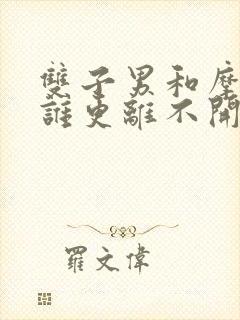 雙子男和摩
誰更離不開
羅文偉